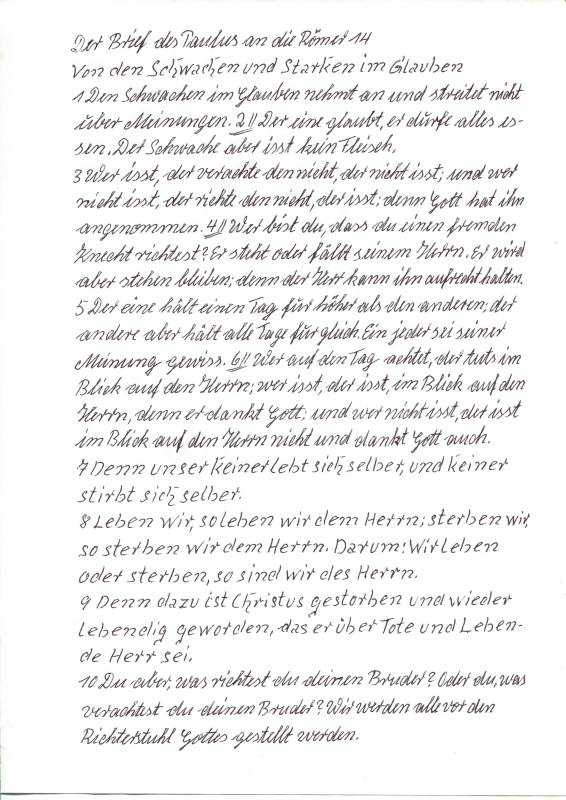 Der Brief des Paulus an die Römer 14
Von den Schwachen und Starken im Glauben
1 Den Schwachen im Glauben nehmt an und streitet nicht
über Meinungen. 2// Der eine glaubt, er dürfe alles es-
sen. Der Schwache aber isst kein Fleisch.
3 Wer isst, der verachte den nicht, der nicht isst; und wer
nicht isst, der richte den nicht, der isst; denn Gott hat ihn
angenommen. 4// Wer bist du, dass du einen fremden
Knecht richtest? Er steht oder fällt seinem Herrn. Er wird
aber stehen bleiben; denn der Herr kann ihn aufrecht halten.
5 Der eine hält einen Tag für höher als den anderen; der
andere aber hält alle Tage für gleich. Ein jeder sei seiner
Meinung gewiss. 6// Wer auf den Tag achtet, der tuts im
Blick auf den Herrn; wer isst, der isst, im Blick auf den
Herrn, denn er dankt Gott; und wer nicht isst, der isst
im Blick auf den Herrn nicht und dankt Gott auch.
7 Denn unser keiner lebt sich selber, und keiner
stirbt sich selber.
8 Leben wir, so leben wir dem Herrn; sterben wir,
so sterben wir dem Herrn. Darum: Wir leben
oder sterben, so sind wir des Herrn.
9 Denn dazu ist Christus gestorben und wieder
lebendig geworden, das er über Tote und Leben-
de Herr sei.
10 Du aber, was richtest du deinen Bruder? Oder du, was
verachtest du deinen Bruder? Wir werden alle vor den
Richterstuhl Gottes gestellt werden.